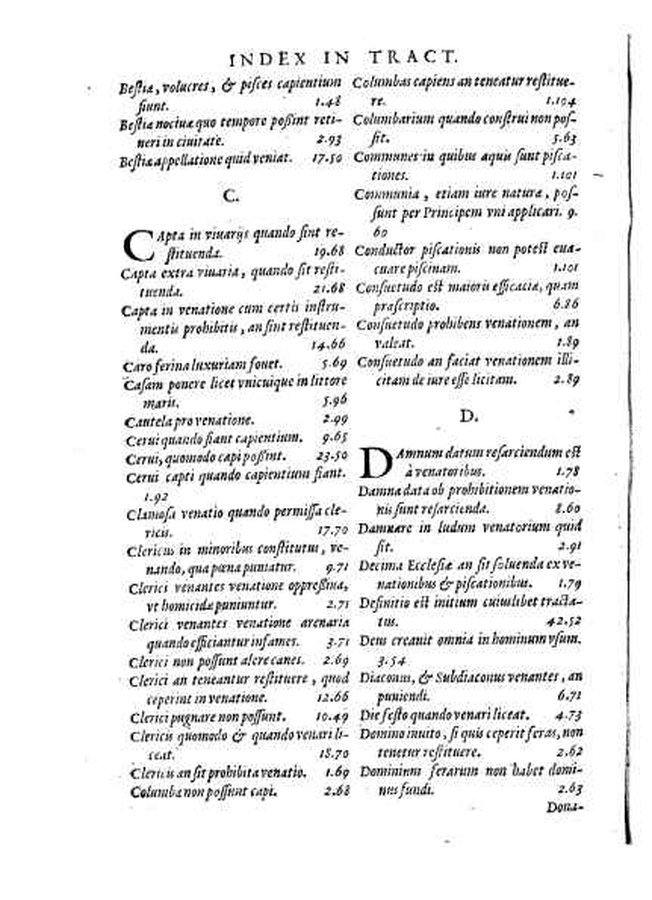 INDEX IN TRACT.
Bestiæ, volucres, & pisces capientium
fiunt. 1.48
Bestiæ nociuæ quo tempore possint reti-
neri in ciuitate. 2.93
Bestiæ appellatione quid veniat. 17.50
C.
CApta in viuarijs quando sint re-
stituenda. 19.68
Capta extra viuaria, quando sit resti-
tuenda. 21.68
Capta in venatione cum certis instru-
mentis prohibitis, an sint restituen-
da. 14.66
Caro ferina luxuriam fouet. 5.69
Casam ponere licet vnicuique in littore
maris. 5.96
Cautela pro venatione. 2.99
Cerui quando fiant capientium. 9.65
Cerui, quomodo capi possint. 23.50
Cerui capti quando capientium fiant.
1.92
Clamosa venatio quando permissa cle-
ricis. 17.70
Clericus in minoribus constitutus, ve-
nando, qua pœna puniatur. 9.71
Clerici venantes venatione oppressiua,
vt homicidæ puniuntur. 2.71
Clerici venantes venatione arenaria
quando efficiantur infames. 3.71
Clerici non possunt alere canes. 2.69
Clerici an teneantur restituere, quod
ceperint in venatione. 12.66
Clerici pugnare non possunt. 10.49
Clericis quomodo & quando venari li-
ceat. 18.70
Clericis an sit prohibita venatio. 1.69
Columbæ non possunt capi. 2.68
Columbas capiens an teneatur restitue-
re. 1.104
Columbarium quando construi non pos-
sit. 5.63
Communes in quibus aquis sunt pisca-
tiones. 1.101
Communia, etiam iure naturæ, pos-
sunt per Principem vni applicari. 9.
60
Conductor piscationis non potest eua-
cuare piscinam. 1.101
Consuetudo est maioris efficaciæ, quam
præscriptio. 6.86
Consuetudo prohibens venationem, an
valeat. 1.89
Consuetudo an faciat venationem illi-
citam de iure esse licitam. 2.89
D.
DAmnum datum resarciendum est
à venatoribus. 1.78
Damna data ob prohibitionem venatio-
nis sunt resarcienda. 8.60
Damnare in ludum venatorium quid
sit. 2.91
Decima Ecclesiæ an sit soluenda ex ve-
nationibus & piscationibus. 1.79
Definitio est initium cuiuslibet tracta-
tus. 42.52
Deus creauit omnia in hominum vsum.
3.54
Diaconus, & Subdiaconus venantes, an
puniendi. 6.71
Die festo quando venari liceat. 4.73
Domino inuito, si quis ceperit feras, non
tenetur restituere. 2.62
Dominium ferarum non habet domi-
nus fundi. 2.63
Dona-